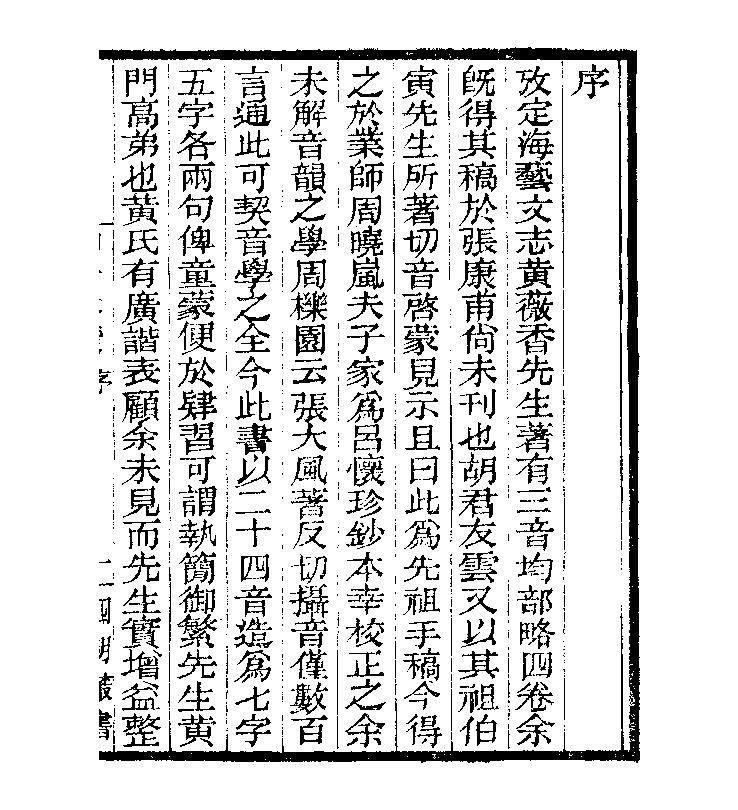 序
攷定海藝文志黃薇香先生著有三音均部略四卷余
旣得其稿於張康甫尙未刊也胡君友雲又以其祖伯
寅先生所著切音啓蒙見示且曰此爲先祖手稿今得
之於業師周曉嵐夫子家爲呂懷珍鈔本幸校正之余
未解音韻之學周櫟園云張大風著反切攝音僅數百
言通此可契音學之全今此書以二十四音造爲七字
五字各兩句俾童蒙便於肄習可謂執簡御繁先生黃
門高弟也黃氏有廣諧表顧余未見而先生實增益整
序 二 國朝叢書